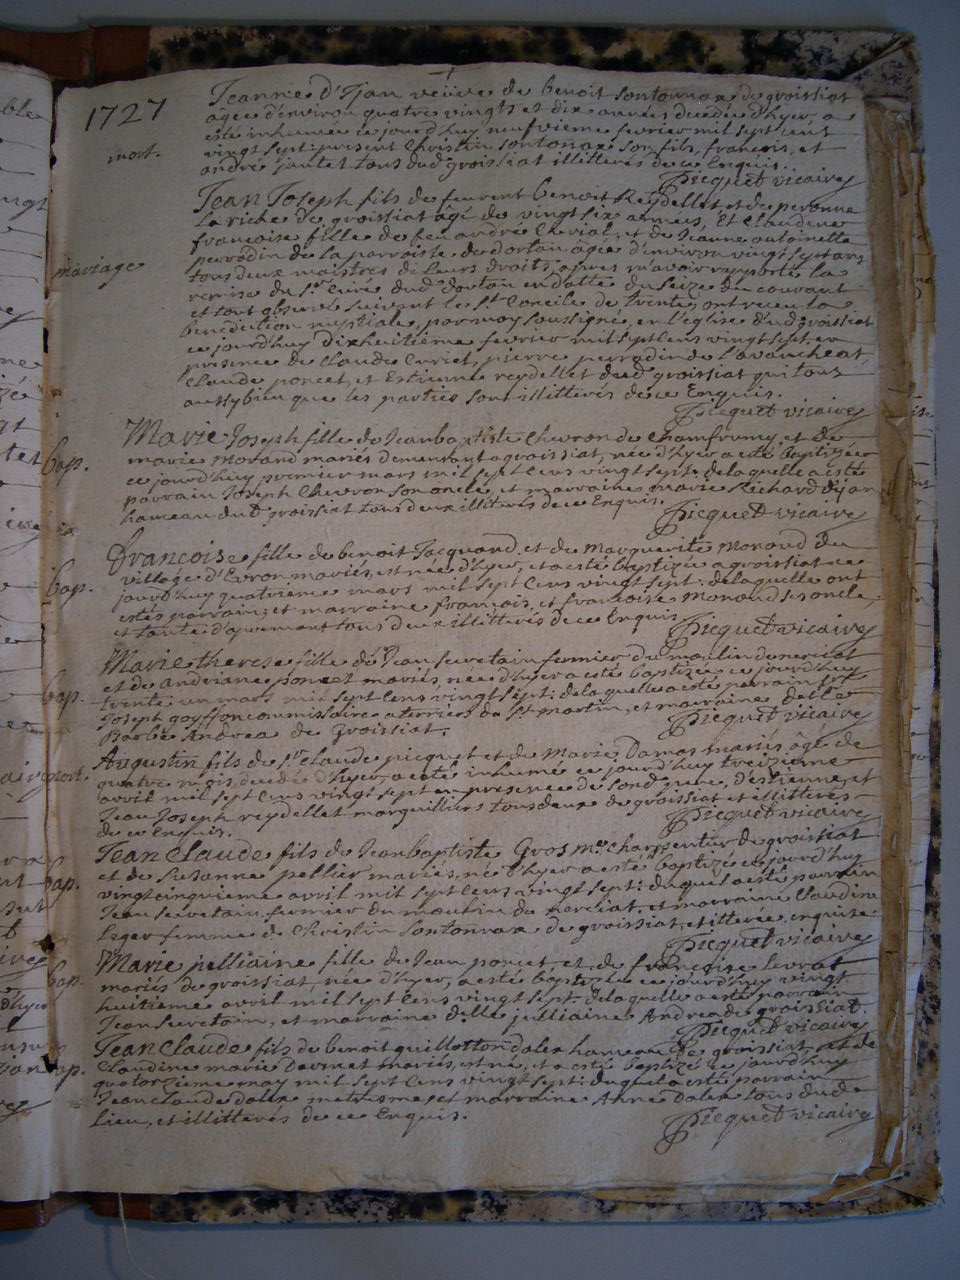 1727
Jeanne d'Ijan veüve de benoit sontonnax de groissiat
agée d'environ quatre vingts et dix années decedée d'hyer, a
esté inhumée ce jourd'huy neufvieme fevrier mil sept cent
vingt sept: present Christin sontonax son fils, francois, et
mort.
andré jantet tous dud groissiat illitterés de ce Enquis.
Picquet vicaire
Jean Joseph fils de feu benoit Reydellet et de peronne
la riche de groissiat agé de vingt six années, Et Claudine
francoise fille de feu andré Curial, et de Jeanne antoinette
perrodin de la parroisse de dortan agée d'environ vingt sept ans
mariage
tous deux maistres de leurs droits, apres m'avoir rapporté la
remise du Sr Curé dud dortan en datte du seize du courant
et tout observé suivant le St Concile de trente, ont receu la
benediction nuptiale, par moy soussigné, en l'eglise dud groissiat
ce jourd'huy dixhuitième fevrier mil sept cens vingt sept, en
presence de Claude Curiet, pierre perrodin de lavancheat,
Claude poncet, et Estienne reydellet dud groissiat qui tous
aussy bien que les parties sont illitterés de ce Enquis.
Picquet vicaire
Marie Joseph fille de Jean baptiste Chevron de Chamfromy, et de
bap.
marie Morand mariés demeurant a groissiat, née d'hyer a esté baptizée
ce jourd'huy premier mars mil sept cens vingt sept: de laquelle a esté
parrain Joseph Chevron son oncle, et marraine marie Richard d'ijan
hameau dud groissiat tous deux illitterés de ce Enquis.
Picquet vicaire
francoise fille de benoit Jacquand, et de Marguerite Morand du
bap.
village d'Evron mariés, est née d'hyer, et a esté baptizée a groissiat ce
jourd'huy quatrième mars mil sept cens vingt sept: de laquelle ont
estés parrain, et marraine françois, et francoise Morand ses oncle,
et tante d'Oyonnax tous deux illitterés de ce Enquis.
Picquet vicaire
Marie therese fille de Jean secretain fermier du moulin de nerciat
et de Andriane poncet mariés, née d'hyer a esté baptizée ce jourd'huy
bap.
trente un mars mil sept cens vingt sept: de laquelle a esté parrain Sr
Joseph goyffon commissaire a terriers de St martin, et marraine delle
Barbe Andrea de Groissiat.
Picquet vicaire
Augustin fils de Sr Claude picquet et de Marie Damas mariés âgé de
mort.
quatre mois, decedé d'hyer, a esté inhumé ce jourd'huy treizieme
avril mil sept cens vingt sept en presence de d'estienne, et
Jean Joseph reydellet marguilliers tous deux de groissiat et illitterés
de ce Enquis.
Picquet vicaire
Jean Claude fils de Jean baptiste Gros Me charpentier de groissiat
bap.
et de Susanne pellier mariés, né d'hyer a esté baptizé ce jourd'huy
vingt cinquieme avril mil sept cens vingt sept: duquel a esté parrain
Jean secretain fermier du moulin de nerciat, et marraine Claudine
leger femme de Christin sontonnax de groissiat, et illiterée, enquise
Picquet vicaire
Marie julliaine fille de Jean poncet, et de francoise levrat
bap.
mariés de groissiat, née d'hyer, a esté baptizée ce jourd'huy vingt
huitieme avril mil sept cens vingt sept: de laquelle a esté parrain
Jean secretain, et marraine delle julliaine Andrea de groissiat.
Picquet vicaire
Jean Claude fils de benoit guillotton d'alex hameau de groissiat, et de
bap.
Claudine marie Devenet mariés, est né, et a esté baptizé ce jourd'huy
quatorzieme may mil sept cens vingt sept: duquel a esté parrain
Jean Claude dalex et marraine Anne Dalex tous dud
lieu, et illitterés de ce Enquis.
Picquet vicaire